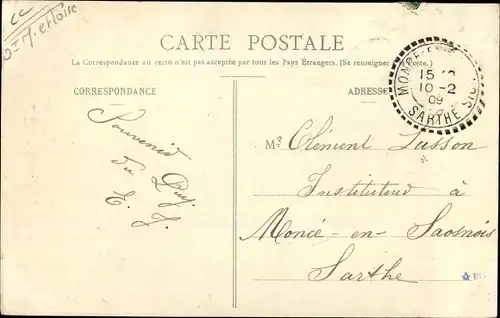 CARTE POSTALE
La Correspondance au recto n'est pas acceptée par tous les Pays Étrangers. (Se renseigner Poste.)
CORRESPONDANCE
ADRESSE
15
10-2
09
SARTHE
Souvenir
du
E. J.
Mr Clément Lusson
Instituteur à
Moncé-en-Saosnois
Sarthe
et Loire